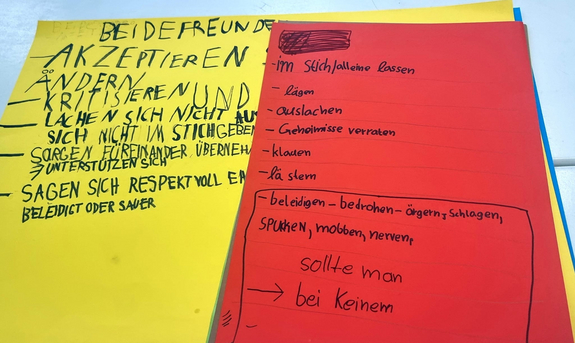 BEIDE FREUNDE
- AKZEPTIEREN
ÄNDERN
- KRITISIEREN UND
- LACHEN SICH NICHT AUS
SICH NICHT IM STICH GEBEN
- SORGEN FÜREINANDER ÜBERNEH
→ UNTERSTÜTZEN SICH
- SAGEN SICH RESPEKTVOLL
BELEIDICT ODER SAUER
- im Stich/alleine lassen
- lügen
- auslachen
- Geheimnisse verraten
- klauen
- lästern
- beleidigen - bedrohen - örgern, schlagen,
spucken, mobben, nerven,
sollte man
→ bei Keinem